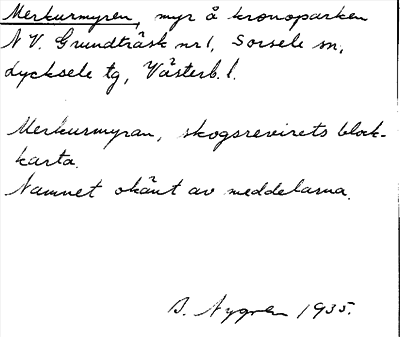 Merkurmyren, myr å kronoparken
N V. Grundträsk nr 1, Sorsele sn,
Lycksele tg, Västerb. l.
Merkurmyran, skogsrevirets block-
karta.
Namnet okänt av meddelarna.
B. Nygren 1935.